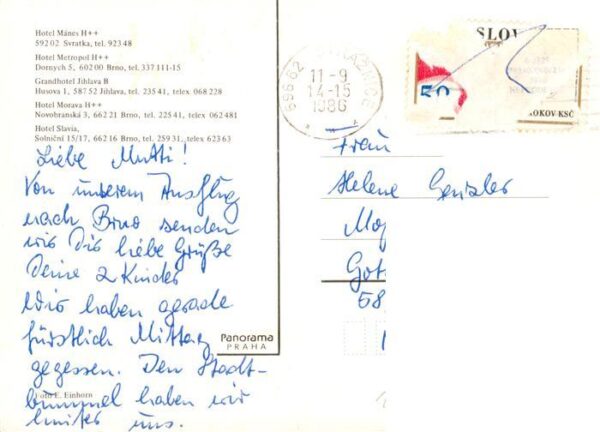 Hotel Mánes H++
592 02 Svratka, tel. 923 48
Hotel Metropol H++
Dornych 5, 602 00 Brno, tel. 337 111-15
Grandhotel Jihlava B
Husova 1, 587 52 Jihlava, tel. 235 41, telex 068 228
Hotel Morava H++
Novobranská 3, 662 21 Brno, tel. 225 41, telex 062 481
Hotel Slavia,
Solniční 15/17, 662 16 Brno, tel. 259 31, telex 62 363
Liebe Mutti!
Von unserem Ausflug
nach Brno senden
wir Dir liebe Grüße
Deine 2 Kinder
Wir haben gerade
fürstlich Mittag
gegessen. Den Stadt-
bummel haben wir
hinter uns.
Foto E. Einhorn
Panorama
PRAHA
696 62 STRÁŽNICE
11-9
14-15
1986
SLOV
50
KOKOV-KSČ
Frau
Helene
Got
58